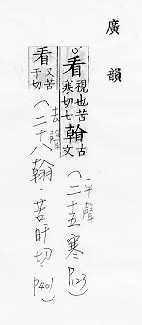 廣韻
。看視也苦寒切七翰古文
(二十五寒 P123)
平聲
看又苦干切
(二十八翰.苦旰切.P401)
去聲